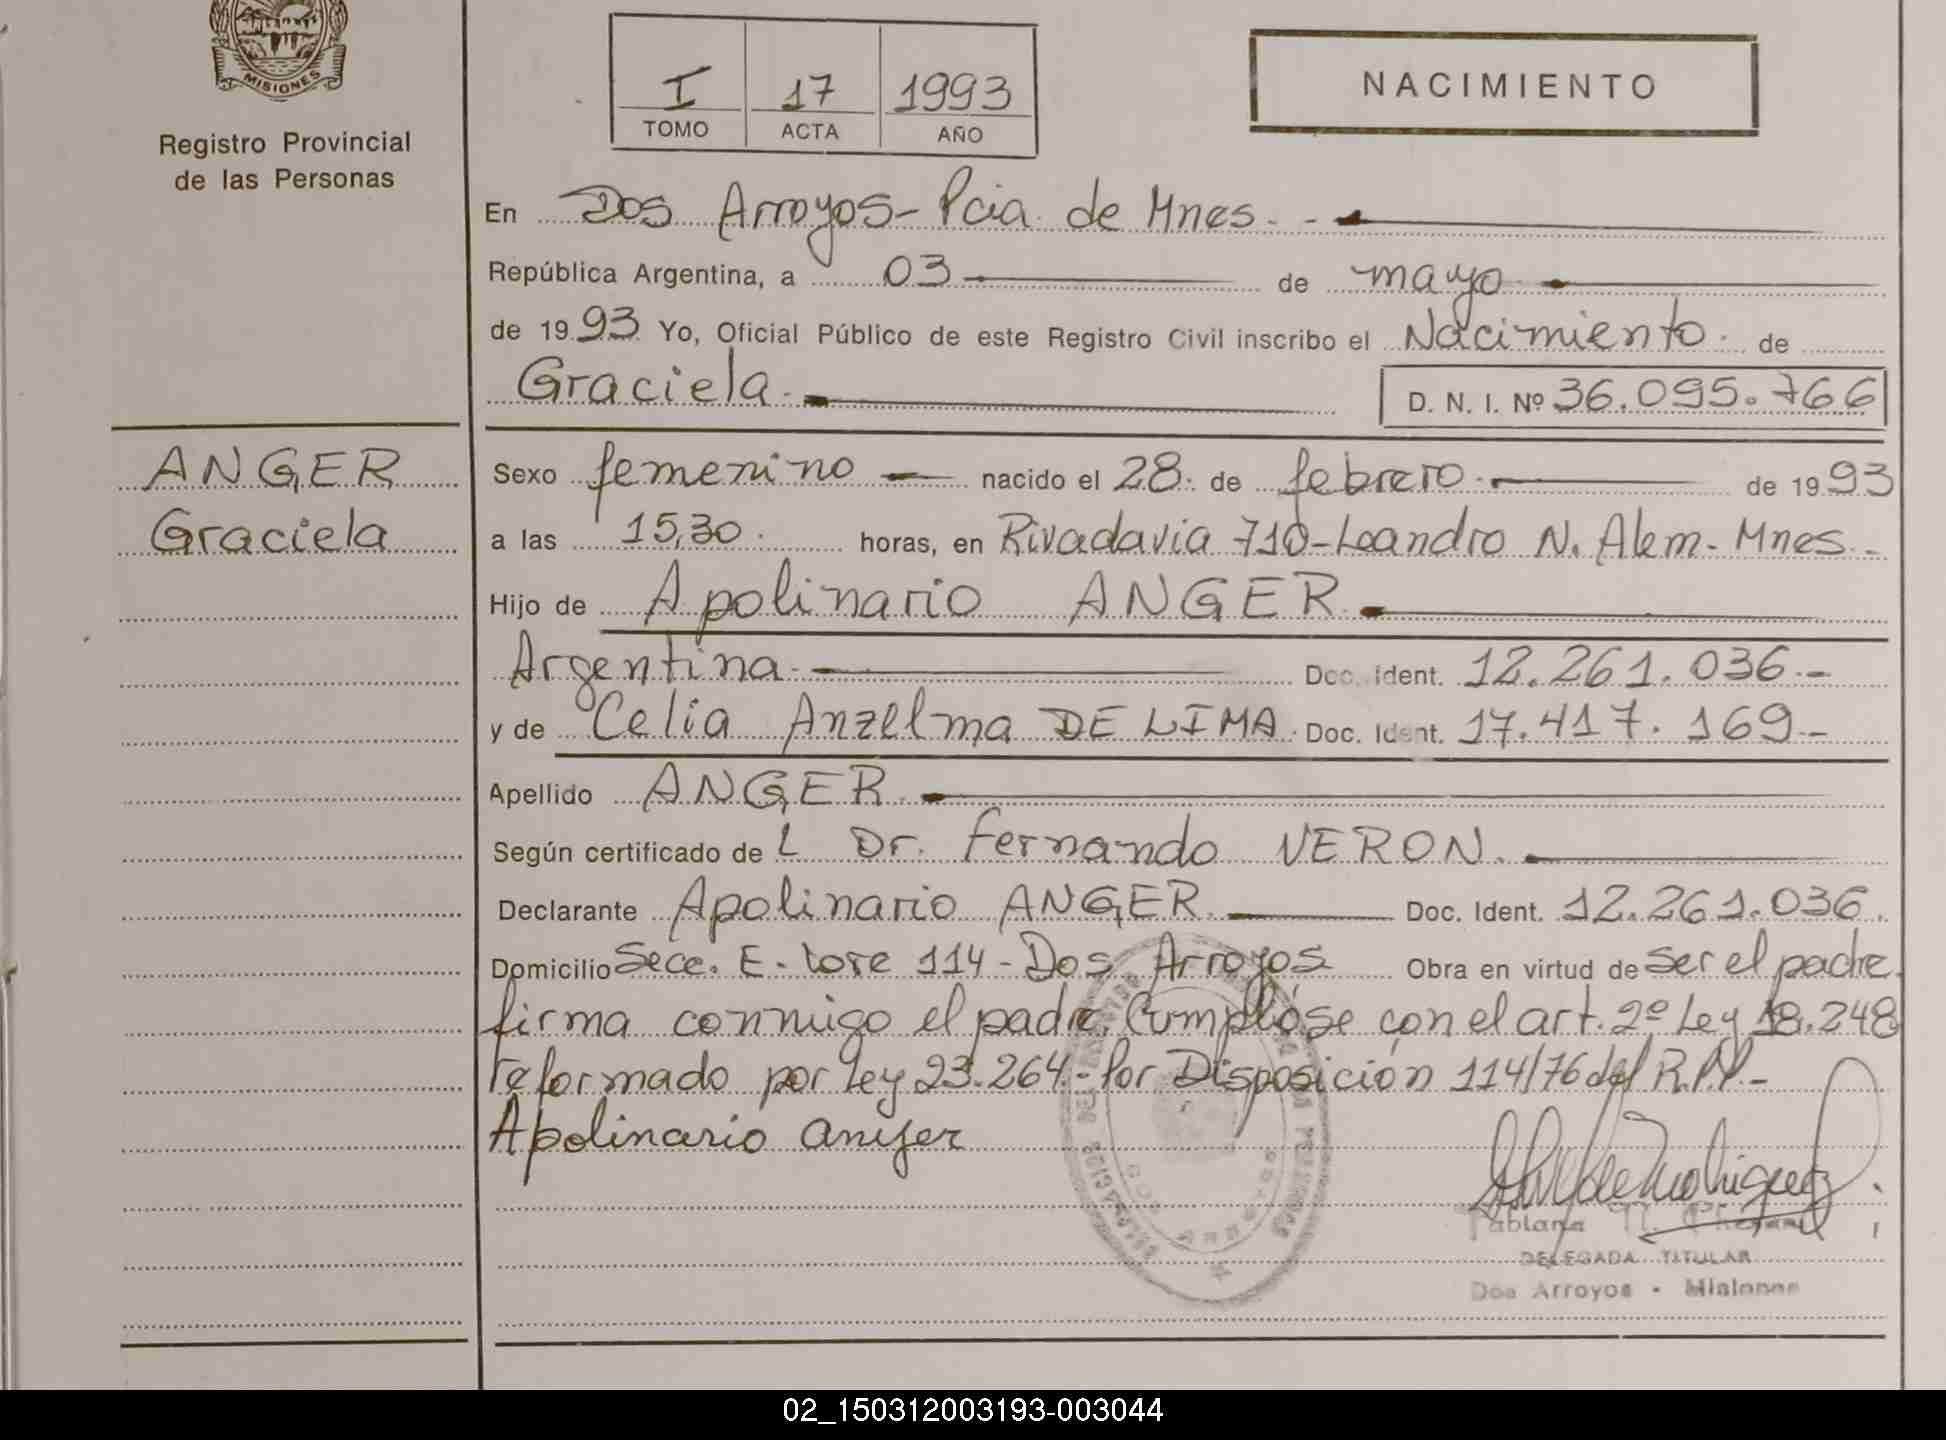 MISIONES
Registro Provincial
de las Personas
I 17 1993
TOMO ACTA AÑO
NACIMIENTO
En Dos Arroyos - Pcia. de Mnes. -
República Argentina, a 03 de mayo
de 1993 Yo, Oficial Público de este Registro Civil inscribo el Nacimiento. de
Graciela. D. N. I. Nº 36.095.766
ANGER
Graciela
Sexo femenino nacido el 28. de febrero. de 1993
a las 15,30. horas, en Rivadavia 710-Leandro N. Alem - Mnes. -
Hijo de Apolinario ANGER.
Argentina. Doc. Ident. 12.261.036.-
y de Celia Anzelma DE LIMA. Doc. Ident. 17.417.169.-
Apellido ANGER.
Según certificado de L Dr. Fernando VERON.
Declarante Apolinario ANGER. Doc. Ident. 12.261.036.
Domicilio Secc. E - lote 114 - Dos Arroyos Obra en virtud de ser el padre.
firma conmigo el padre. Cumplióse con el art. 2º Ley 18.248
reformado por Ley 23.264.- Por Disposición 114/76 del R.P.P.-
Apolinario anger
Fabiana N.
DELEGADA TITULAR
Dos Arroyos - Misiones
02_150312003193-003044